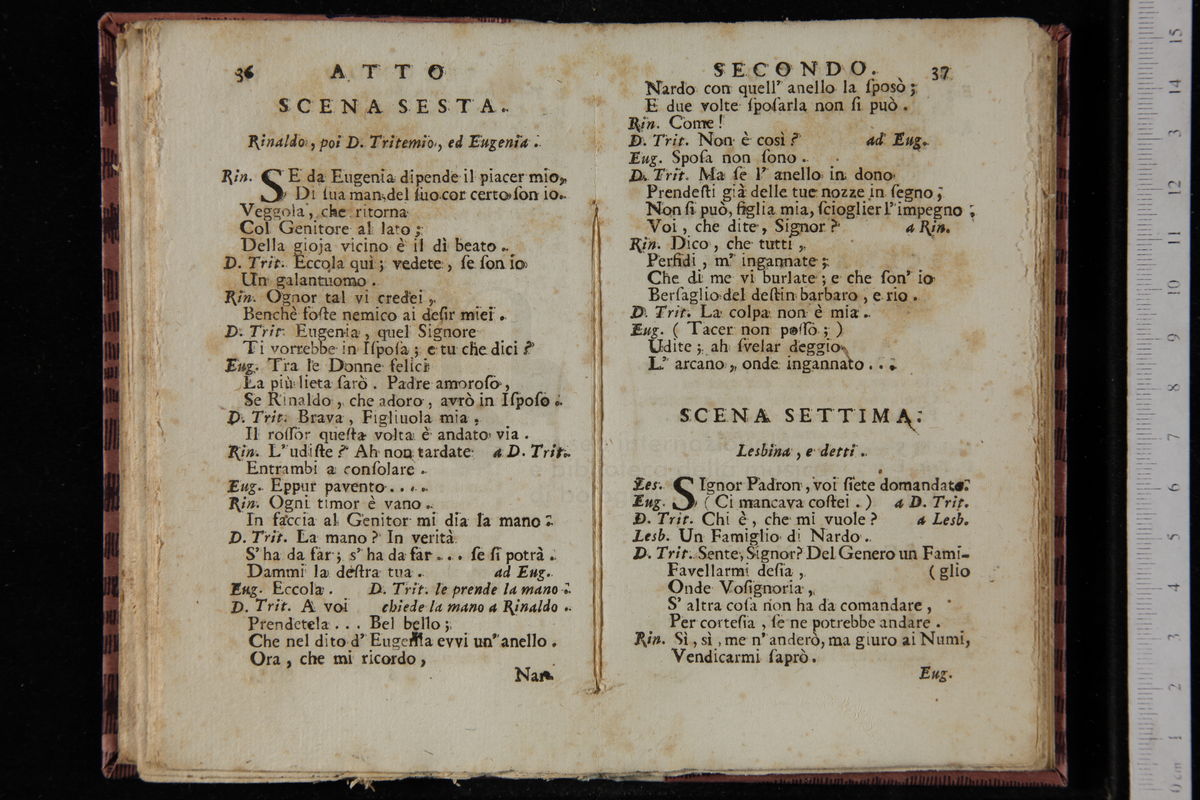 36 ATTO
SCENA SESTA.
Rinaldo, poi D. Tritemio, ed Eugenia.
Rin. SE da Eugenia dipende il piacer mio,
Di ſua man, del ſuo cor certo ſon io.
Veggola, che ritorna
Col Genitore al lato;
Della gioja vicino è il dì beato.
D. Trit. Eccola quì; vedete, ſe ſon io
Un galantuomo.
Rin. Ognor tal vi credei,
Benchè foſte nemico ai deſir miei.
D. Trit. Eugenia, quel Signore
Ti vorrebbe in Iſpoſa; e tu che dici?
Eug. Tra le Donne felici
La più lieta ſarò. Padre amoroſo,
Se Rinaldo, che adoro, avrò in Iſpoſo.
D. Trit. Brava, Figliuola mia,
Il roſſor queſta volta è andato via.
Rin. L'udiſte? Ah non tardate a D. Trit.
Entrambi a conſolare.
Eug. Eppur pavento....
Rin. Ogni timor è vano.
In faccia al Genitor mi dia la mano.
D. Trit. La mano? In verità
S'ha da far; s'ha da far... ſe ſi potrà.
Dammi la deſtra tua. ad Eug.
Eug. Eccola. D. Trit. le prende la mano.
D. Trit. A voi chiede la mano a Rinaldo.
Prendetela... Bel bello;
Che nel dito d'Eugenia evvi un'anello.
Ora, che mi ricordo,
Nar-
SECONDO. 37
Nardo con quell'anello la ſposò;
E due volte ſpoſarla non ſi può.
Rin. Come!
D. Trit. Non è così? ad Eug.
Eug. Spoſa non ſono.
D. Trit. Ma ſe l'anello in dono
Prendeſti già delle tue nozze in ſegno;
Non ſi può, figlia mia, ſcioglier l'impegno;
Voi, che dite, Signor? a Rin.
Rin. Dico, che tutti,
Perfidi, m'ingannate;
Che di me vi burlate; e che ſon'io
Berſaglio del deſtin barbaro, e rio.
D. Trit. La colpa non è mia.
Eug. (Tacer non poſſo;)
Udite; ah ſvelar deggio
L'arcano, onde ingannato...
SCENA SETTIMA.
Lesbina, e detti.
Les. SIgnor Padron, voi ſiete domandato.
Eug. (Ci mancava coſtei.) a D. Trit.
D. Trit. Chi è, che mi vuole? a Lesb.
Lesb. Un Famiglio di Nardo.
D. Trit. Sente, Signor? Del Genero un Fami-
Favellarmi deſia, (glio
Onde Voſignoria,
S'altra coſa non ha da comandare,
Per corteſia, ſe ne potrebbe andare.
Rin. Sì, sì, me n'anderò, ma giuro ai Numi,
Vendicarmi ſaprò.
Eug.